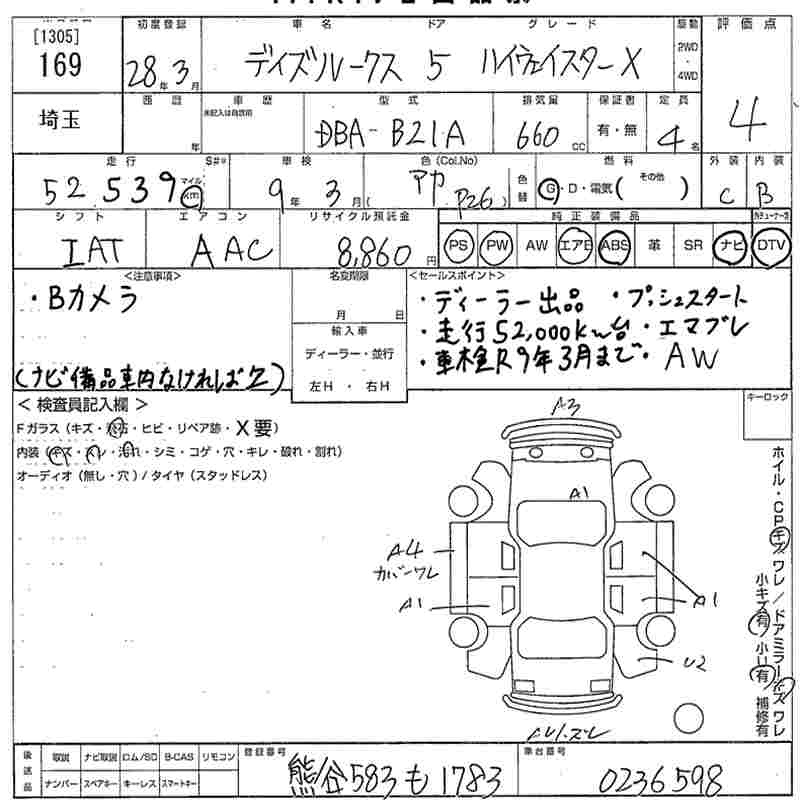 [1305]
169
埼玉
初度登録 車名 ドア グレード 駆動 評価点
28年3月 デイズルークス 5 ハイウェイスターX 2WD・4WD
4
西暦 車歴 型式 排気量 保証書 定員
年 ※記入は自家用 DBA-B21A 660cc 有・無 4名
走行 S#※ 車検 色(Col.No) 色替 燃料 その他 外装 内装
52,539 マイル km 9年3月 ( アカ P26 ) G・D・電気( ) C B
シフト エアコン リサイクル預託金 純正装備品
IAT AAC 8,860円 PS PW AW エアB ABS 革 SR ナビ DTV
<注意事項> 名変期限 <セールスポイント>
・Bカメラ
月 日
・ディーラー出品 ・プッシュスタート
輸入車
・走行52,000km台・エマブレ
ディーラー・並行
・車検R9年3月まで・AW
(ナビ備品車内なければ欠)
左H・右H
<検査員記入欄>
キーロック
Fガラス(キズ・飛石・ヒビ・リペア跡・X要)
内装(キズ・スレ・汚れ・シミ・コゲ・穴・キレ・破れ・割れ)
オーディオ(無し・穴)/タイヤ(スタッドレス)
A3
A1
A4
カバーワレ
A1
A1
U2
ホイル・CPキズワレ/ドアミラーキズワレ
小キズ有 小U有 補修有
後送品 取説 ナビ取説 ロム/SD B-CAS リモコン 登録番号 車台番号
ナンバー スペアキー キーレス スマートキー 熊谷583も1783 0236598